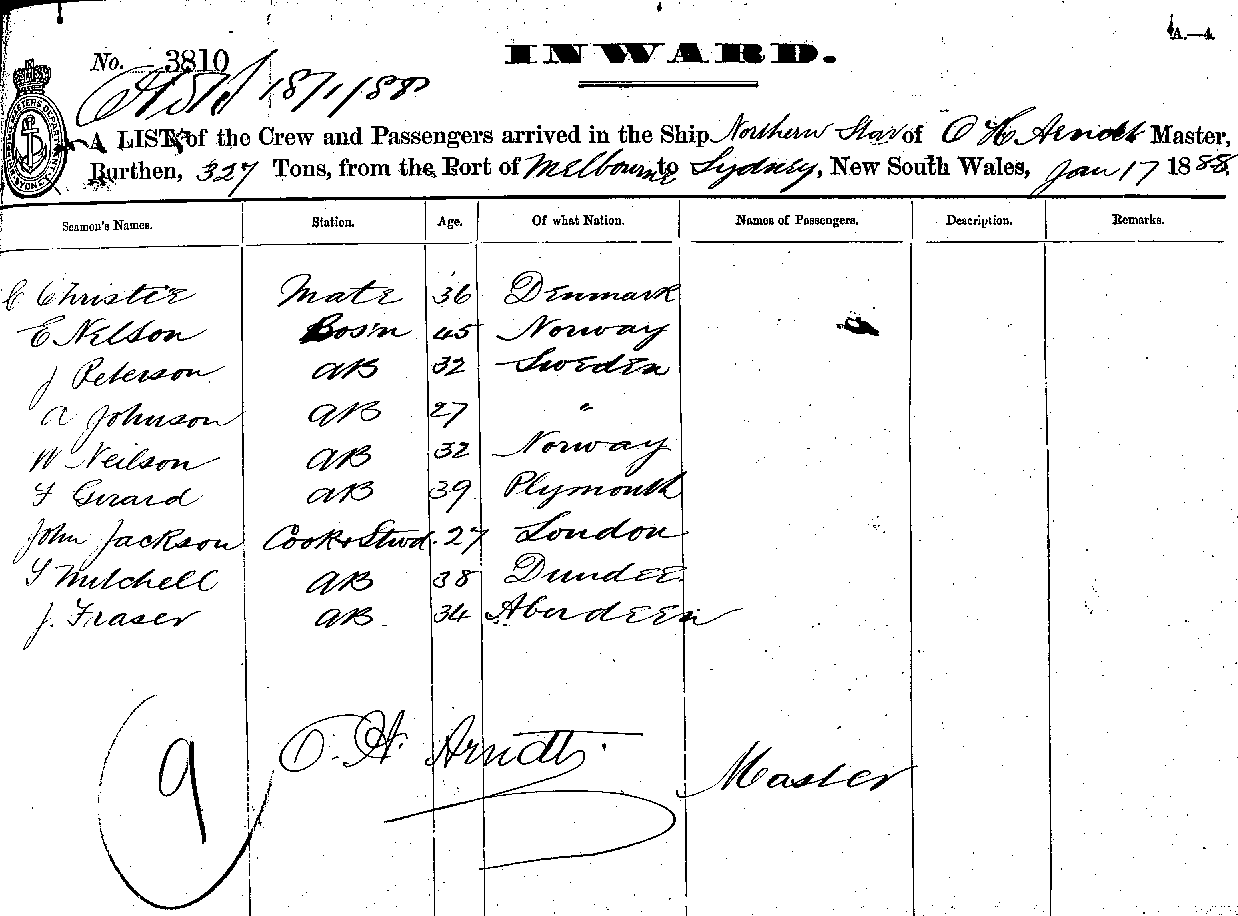 A.—4.
INWARD.
No. 3810
18/1/88
A LIST of the Crew and Passengers arrived in the Ship Northern Star of O H Arndt Master,
Burthen, 327 Tons, from the Port of Melbourne to Sydney, New South Wales, Jan 17 1888.
Seamen's Names. Station. Age. Of what Nation. Names of Passengers. Description. Remarks.
C Christie Mate 36 Denmark
E Nelson Bosn 45 Norway
J Peterson AB 32 Sweden
A Johnson AB 27 "
W Neilson AB 32 Norway
F Gerard AB 39 Plymouth
John Jackson Cook & Stwd. 27 London
T Mitchell AB 38 Dundee
J. Fraser AB 34 Aberdeen
9
O. H. Arndt.
Master